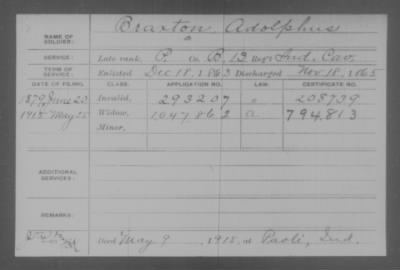 NAME OF SOLDIER: Braxton, Adolphus
SERVICE: Late rank, P. Co. B, 13 Reg't Ind. Cav.
TERM OF SERVICE: Enlisted Dec 18, 1863 Discharged Nov 18, 1865
DATE OF FILING. CLASS. APPLICATION NO. LAW. CERTIFICATE NO.
1879 June 23 Invalid, 293207 208739
1915 May 25 Widow, 1047862 a 794,813
Minor,
ADDITIONAL SERVICES:
REMARKS:
Died May 9, 1915, at Paoli, Ind.